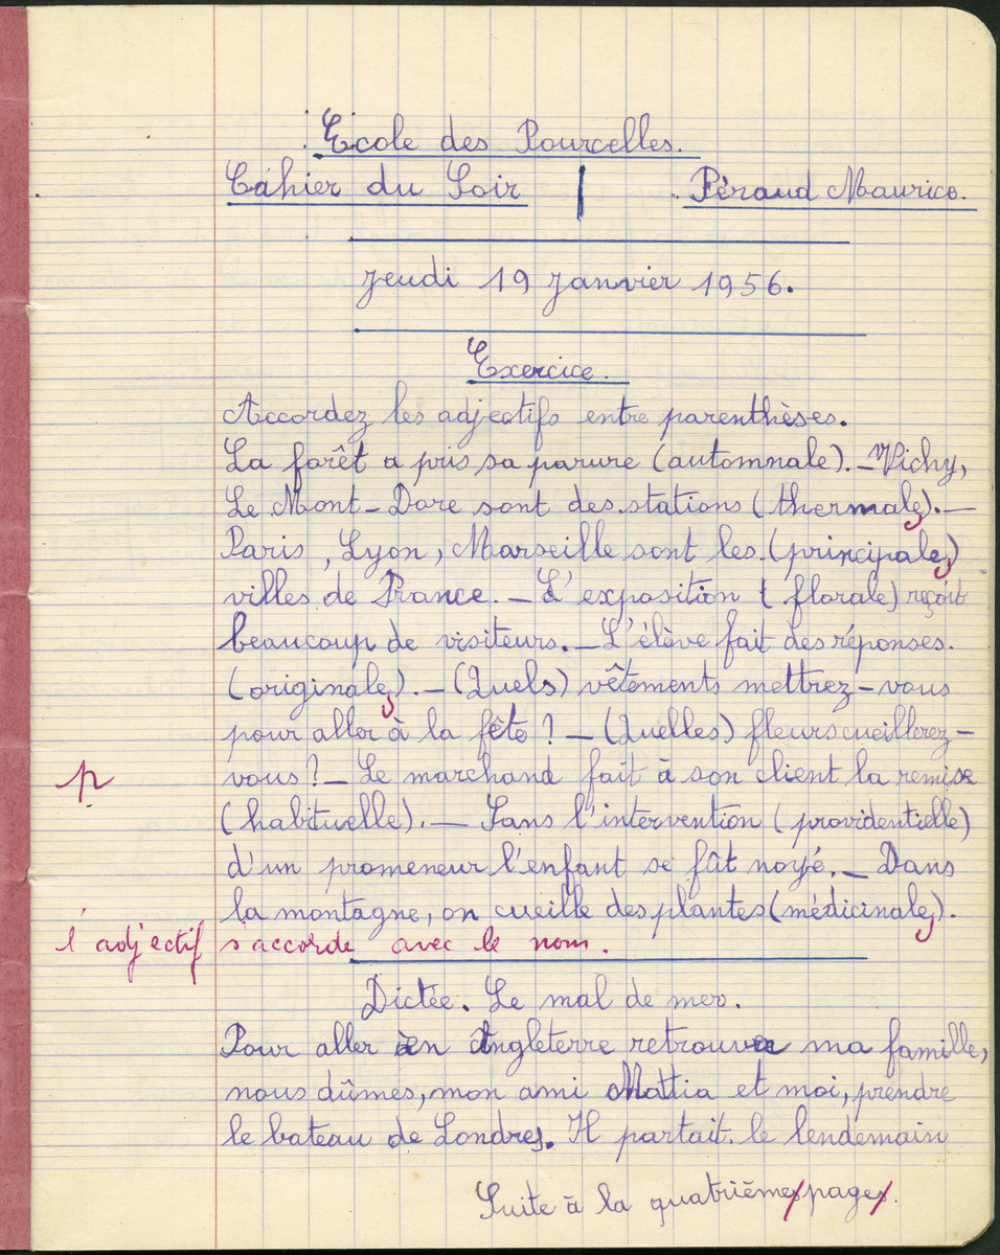 École des Pourcelles.
Cahier du Soir | Péraud Maurice.
jeudi 19 Janvier 1956.
Exercice.
Accordez les adjectifs entre parenthèses.
La forêt a pris sa parure (automnale). _ Vichy,
Le Mont-Dore sont des stations (thermales). _
Paris, Lyon, Marseille sont les (principales)
villes de France. _ L'exposition (florale) reçoit
beaucoup de visiteurs. _ L'élève fait des réponses.
(originales). _ (Quels) vêtements mettrez-vous
pour aller à la fête ? _ (Quelles) fleurs cueillerez-
p
vous ? _ Le marchand fait à son client la remise
(habituelle). _ Sans l'intervention (providentielle)
d'un promeneur l'enfant se fût noyé. _ Dans
la montagne, on cueille des plantes (médicinales).
l'adjectif s'accorde avec le nom.
Dictée. Le mal de mer.
Pour aller en Angleterre retrouver ma famille,
nous dûmes, mon ami Mattia et moi, prendre
le bateau de Londres. Il partait le lendemain
Suite à la quatrièmes pages.